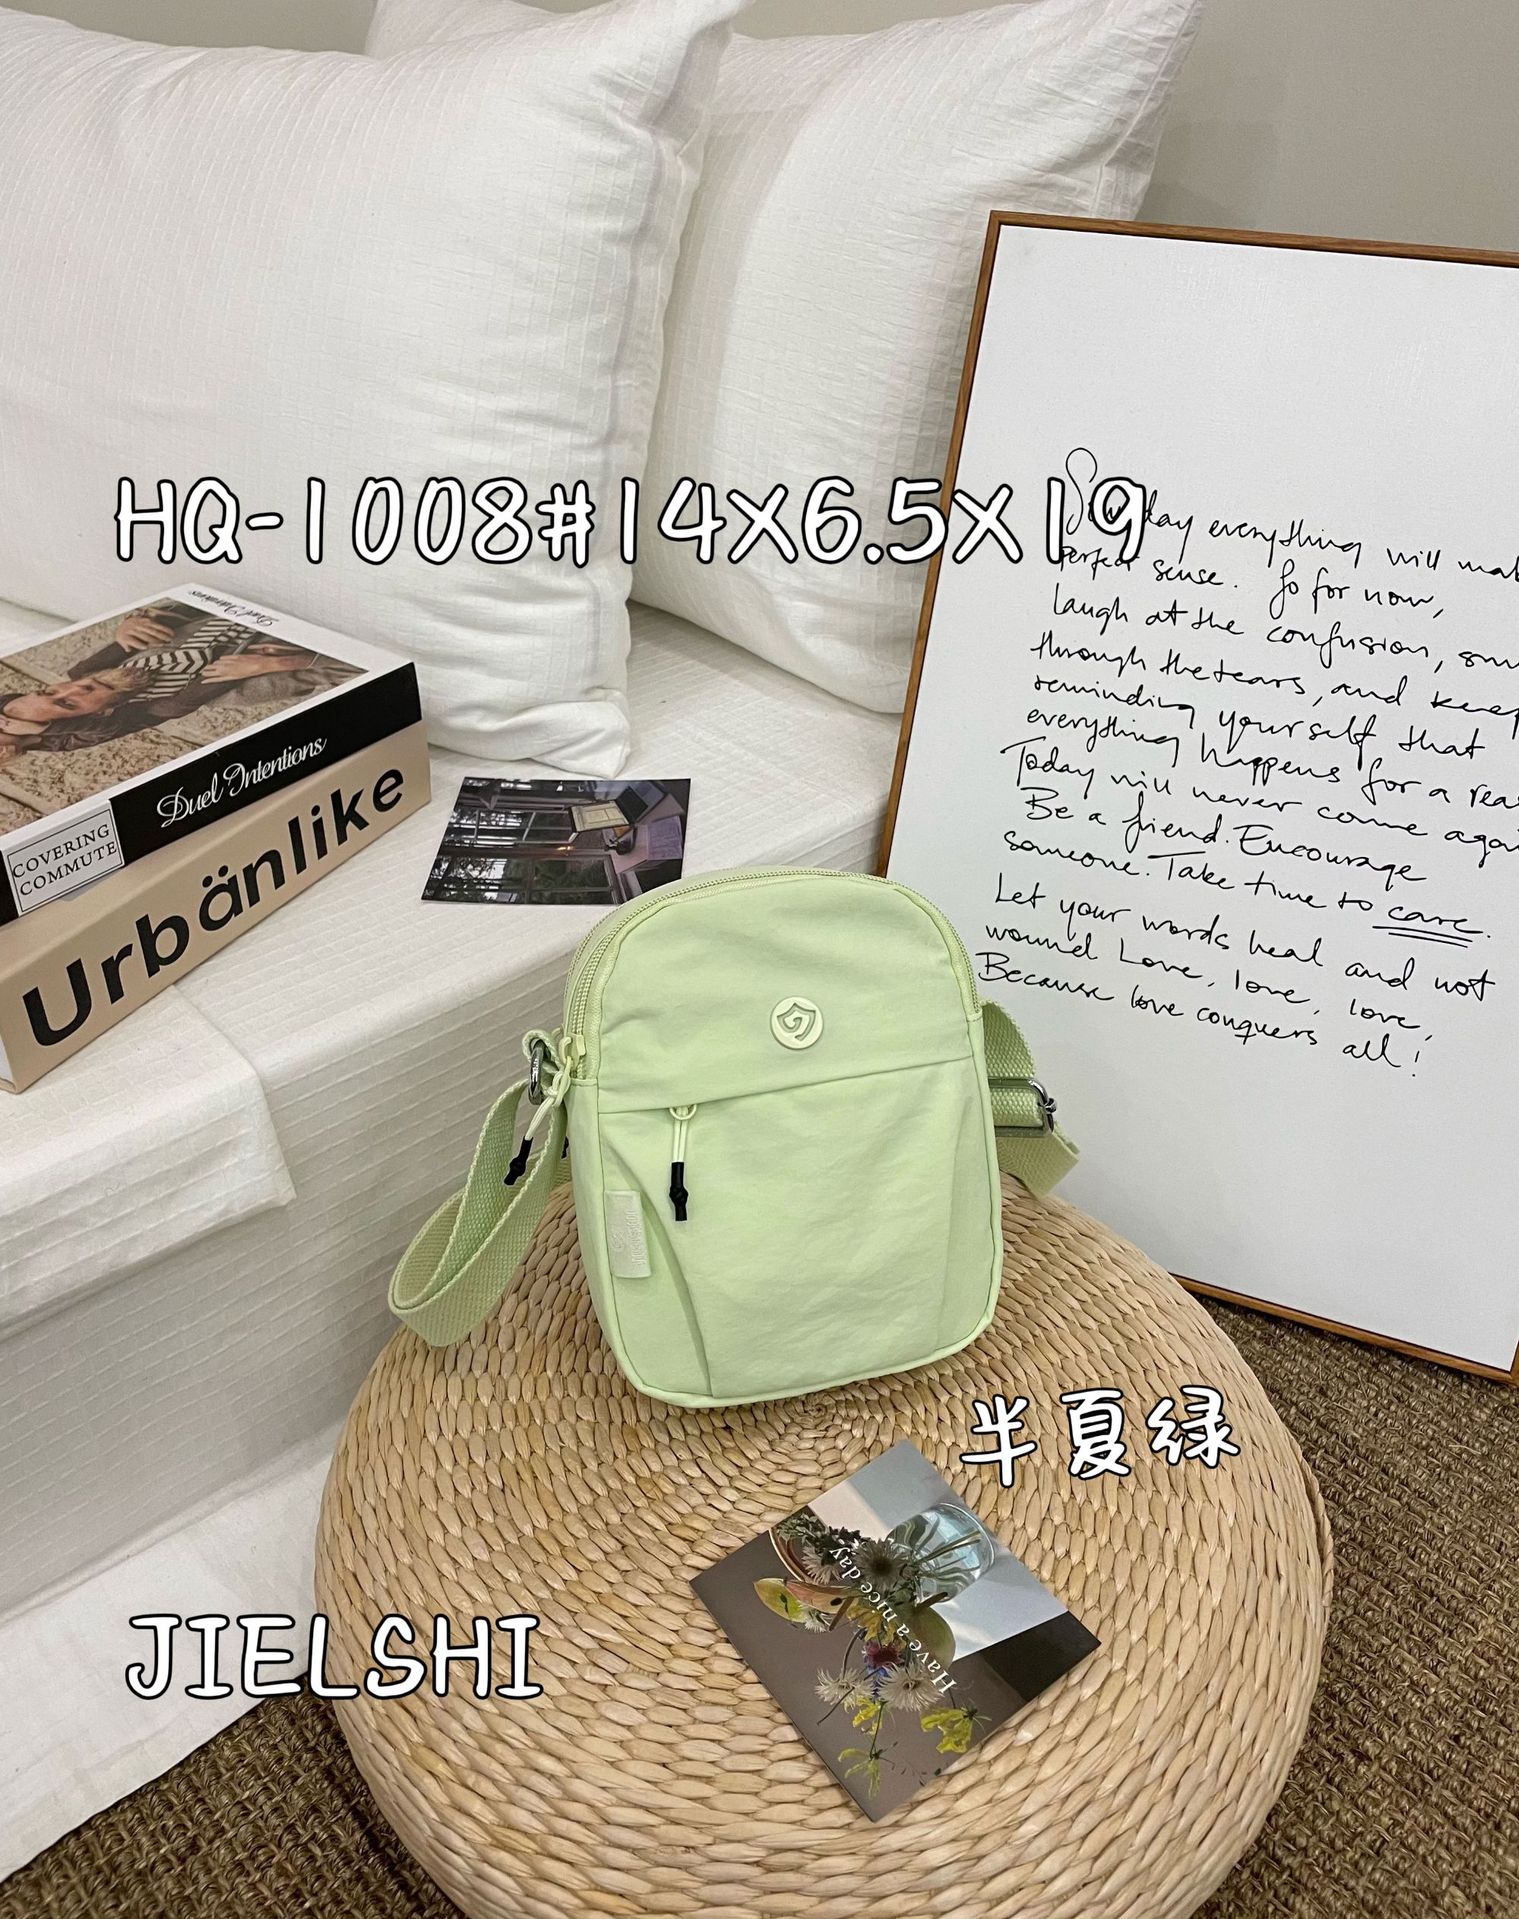 HQ-1008#14X6.5X19
Duel Intentions
Duel Intentions
COVERING
COMMUTE
Urbänlike
Someday everything will
perfect sense. So for now,
laugh at the confusion,
through the tears, and keep
reminding yourself that
everything happens for a
Today will never come
Be a friend. Encourage
someone. Take time to care.
Let your words heal and not
wound Love, love, love,
Because love conquers all!
半夏绿
Have a nice day
JIELSHI